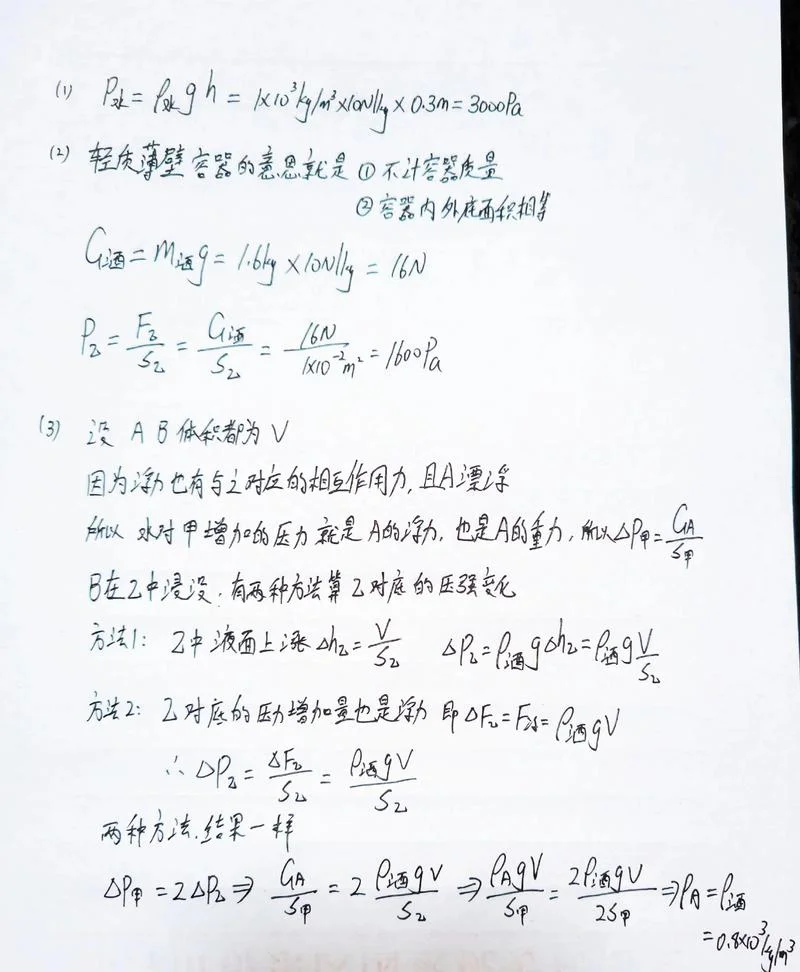 (1) P水=ρ水gh=1×10³kg/m³×10N/kg×0.3m=3000Pa
(2) 轻质薄壁容器的意思就是 ① 不计容器质量
② 容器内外底面积相等
G酒=m酒g=1.6kg×10N/kg=16N
P乙=F乙/S乙=G酒/S乙=16N/1×10⁻²m²=1600Pa
(3) 设 A B 体积都为 V
因为浮力也有与之对应的相互作用力,且A漂浮
所以 水对甲增加的压力就是A的浮力,也是A的重力,所以ΔP甲=GA/S甲
B在乙中浸没,有两种方法算乙对底的压强变化
方法1: 乙中液面上涨Δh乙=V/S乙 ΔP乙=ρ酒gΔh乙=ρ酒gV/S乙
方法2: 乙对底的压力增加量也是浮力 即ΔF乙=F浮=ρ酒gV
∴ΔP乙=ΔF乙/S乙=ρ酒gV/S乙
两种方法,结果一样
ΔP甲=2ΔP乙⇒GA/S甲=2ρ酒gV/S乙⇒ρAgV/S甲=2ρ酒gV/2S甲⇒ρA=ρ酒
=0.8×10³kg/m³